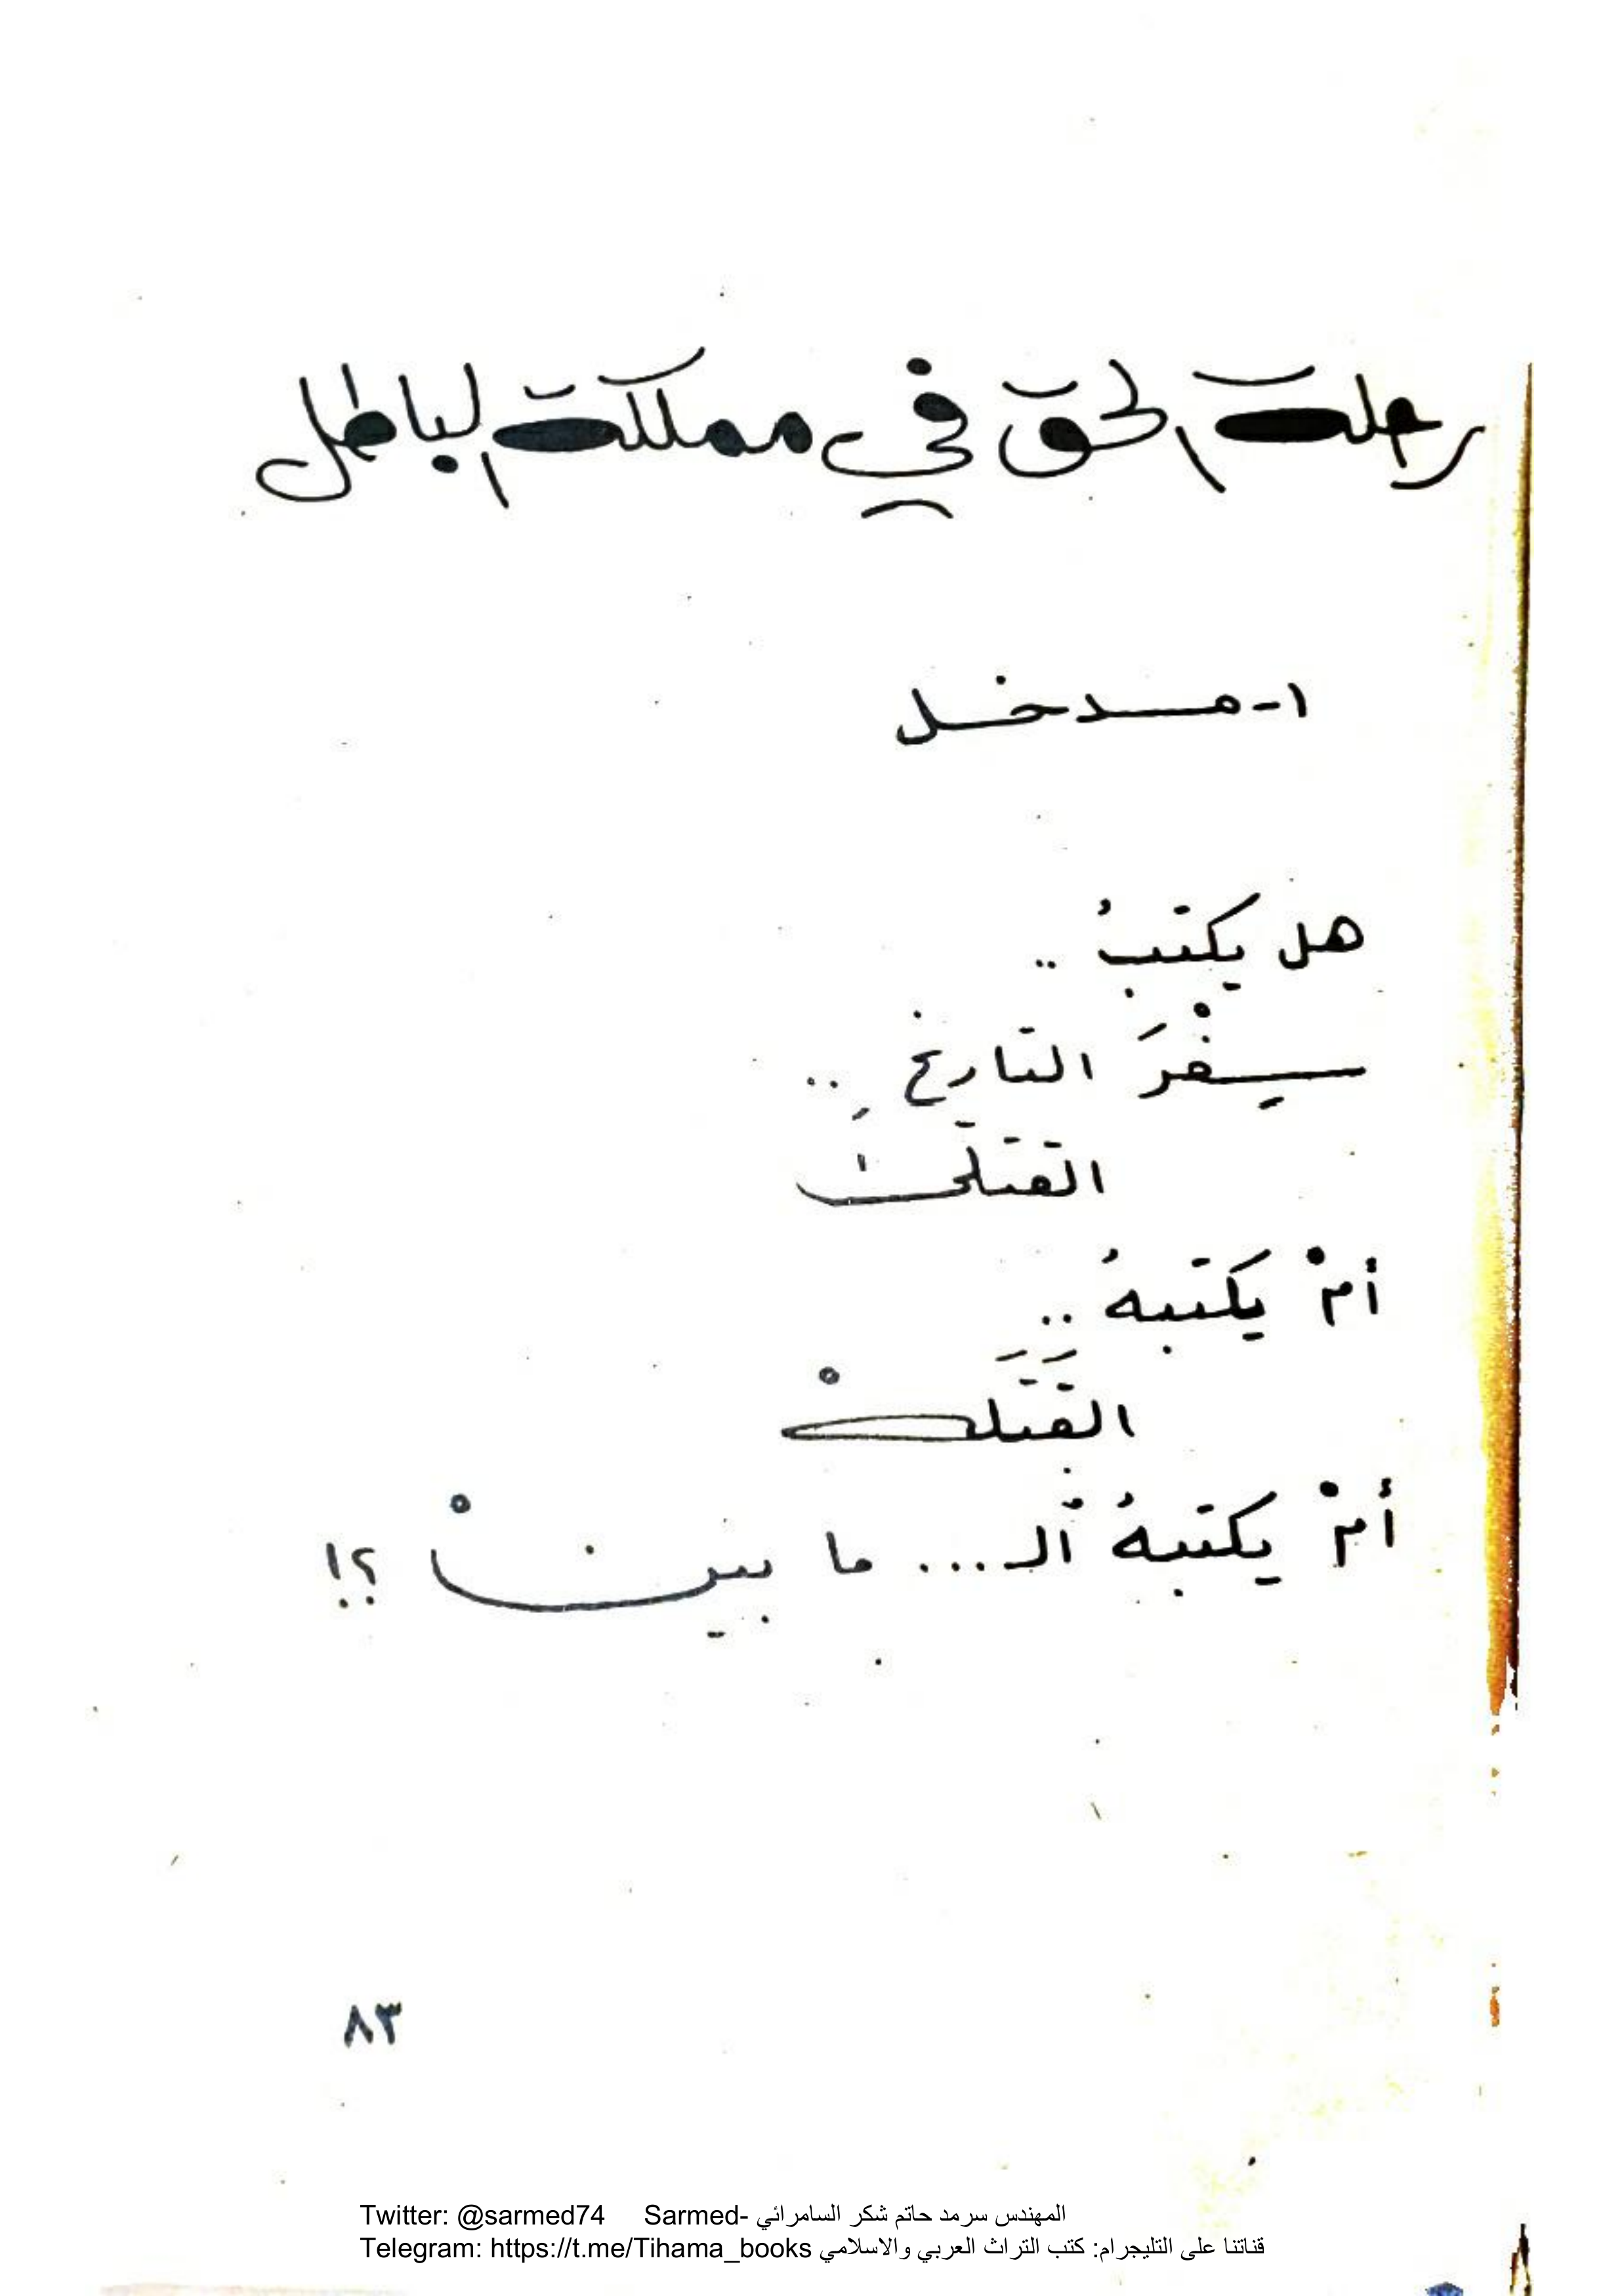 رحلة الحق في مملكة الباطل
١- مدخل
هل يكتبُ ..
سِفْرَ التاريخِ ..
القتلى
أمْ يكتبهُ ..
القَتَلهْ
أمْ يكتبهُ الـ ... ما بينْ ؟!
٨٣
Twitter: @sarmed74 Sarmed- المهندس سرمد حاتم شكر السامرائي
Telegram: https://t.me/Tihama_books قناتنا على التليجرام: كتب التراث العربي والاسلامي